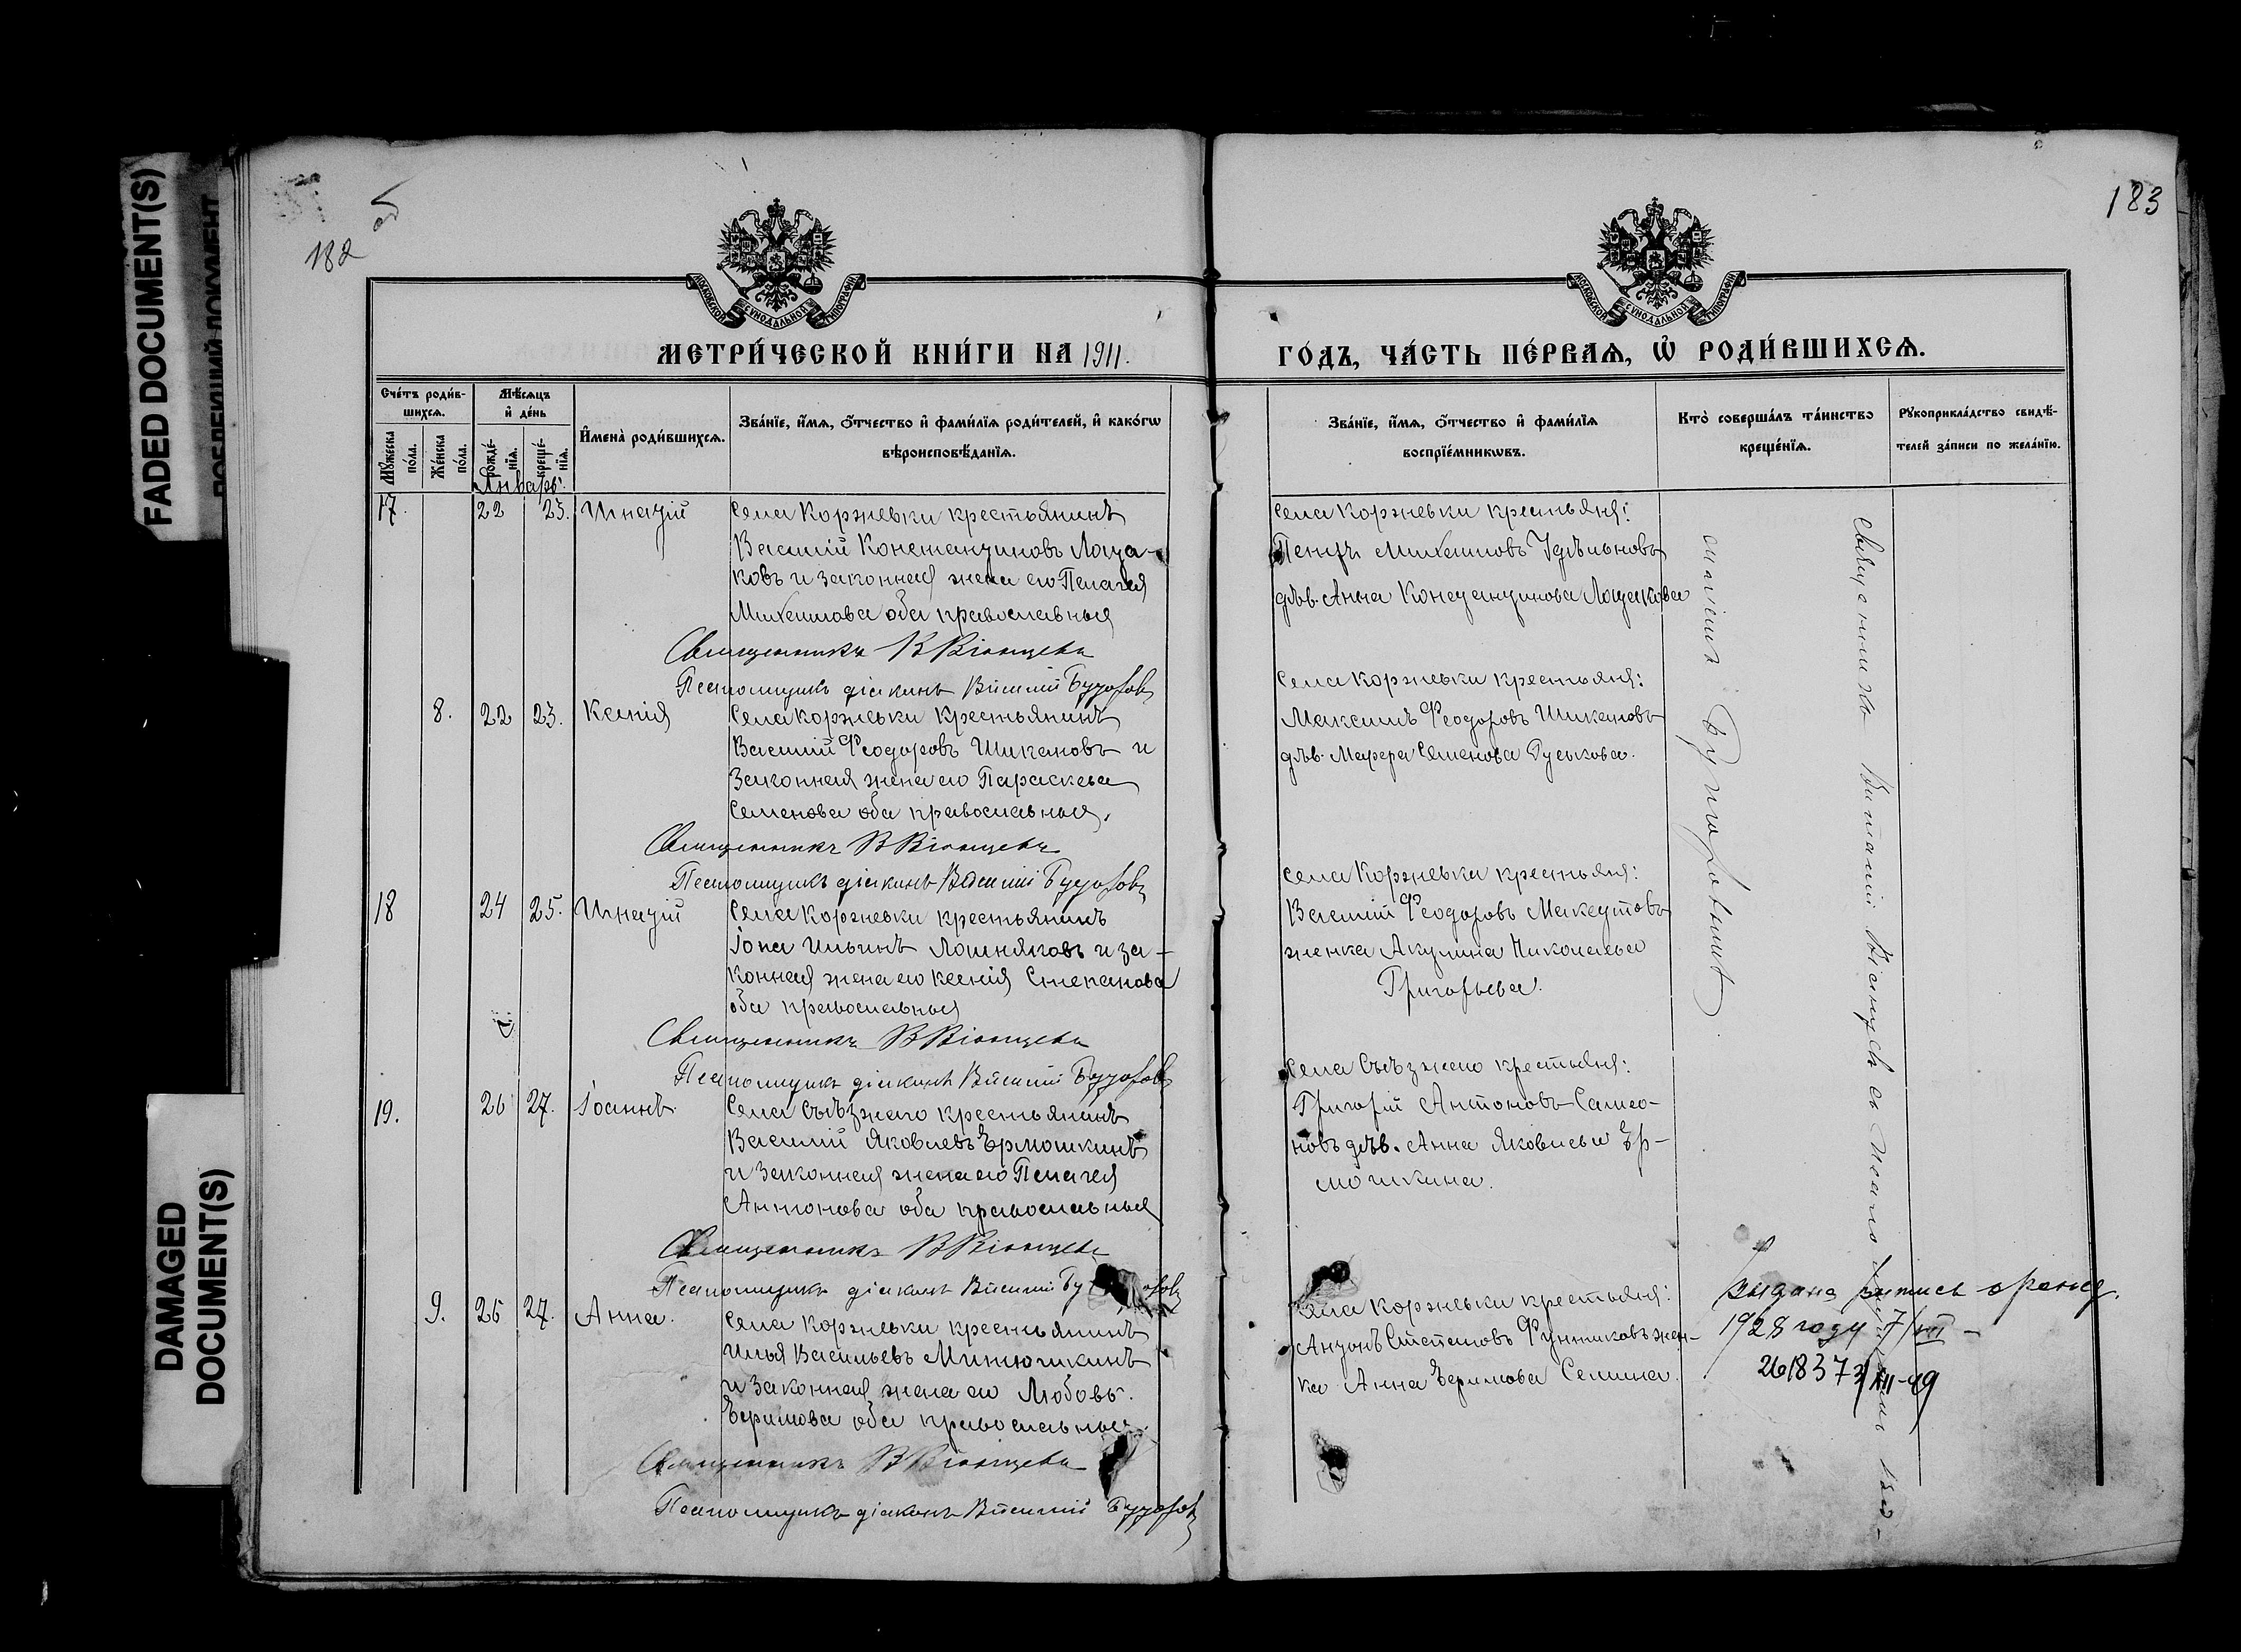 FADED DOCUMENT(S)
DAMAGED
DOCUMENT(S)
182
об
183
МОСКОВСКОЙ СУНОДАЛЬНОЙ ТИПОГРАФІИ
МОСКОВСКОЙ СУНОДАЛЬНОЙ ТИПОГРАФІИ
МЕТРИ́ЧЕСКОЙ КНИ́ГИ НА 1911.
ГО́ДЪ, ЧА́СТЬ ПЕ́РВАѦ, Ѡ҆ РОДИ́ВШИХСѦ.
Сче́тъ роди́в-
шихсѧ.
Мꙋ́жеска по́ла.
Же́нска по́ла.
Мѣ́сѧцъ
и҆ де́нь
рожде́-
нїѧ.
креще́-
нїѧ.
И҆мена̀ роди́вшихсѧ.
Зва́нїе, и҆́мѧ, ѻ҆́тчество и҆ фами́лїѧ роди́телей, и҆ како́гѡ
вѣроисповѣ́данїѧ.
Зва́нїе, и҆́мѧ, ѻ҆́тчество и҆ фами́лїѧ
воспрїе́мникѡвъ.
Кто̀ соверша́лъ та́инство
креще́нїѧ.
Рꙋкоприкла́дство свидѣ́-
телей за́писи по жела́нїю.
Январь.
17. 22 23. Игнатій
Села Коржевки крестьянинъ
Василій Константиновъ Лоща-
ковъ и законная жена его Пелагея
Михаилова оба православныя
Священникъ В
Псаломщикъ діаконъ Василій
Села Коржевки крестьяня:
Петръ Михаиловъ Удѣльновъ
дѣв. Анна Константинова Лощакова
8. 22 23. Ксенія
Села Коржевки крестьянинъ
Василій Феодоровъ Шикановъ и
законная жена его Параскева
Семенова оба православныя.
Священникъ В
Псаломщикъ діаконъ Василій
Села Коржевки крестьяня:
Максимъ Феодоровъ Шикановъ
дѣв. Марфа Семенова Гуськова.
18 24 25. Игнатій
Села Коржевки крестьянинъ
Іона Ильинъ Лошняговъ и за-
конная жена его Ксенія Степанова
оба православныя
Священникъ В
Псаломщикъ діаконъ Василій
Села Коржевки крестьяня:
Василій Феодоровъ Максутовъ
женка Акулина Николаева
Григорьева.
19. 26 27. Іоаннъ.
Села Съѣзжаго крестьянинъ
Василій Яковлевъ Ермошкинъ
и законная жена его Пелагея
Антонова оба православныя
Священникъ В
Псаломщикъ діаконъ Василій
Села Съѣзжаго крестьяня:
Григорій Антоновъ Самсо-
новъ дѣв. Анна Яковлева Ер-
мошкина.
9. 26 27. Анна.
Села Коржевки крестьянинъ
Илья Васильевъ Минюшкинъ
и законная жена его Любовь
Ефимова оба православныя.
Священникъ В
Псаломщикъ діаконъ Василій
Села Коржевки крестьяня:
Антонъ Степановъ Фунтиковъ жен-
ка Анна Ефимова Семина.
Священникъ Виталій съ псаломщикомъ
выдана
1928 году 7/VIII